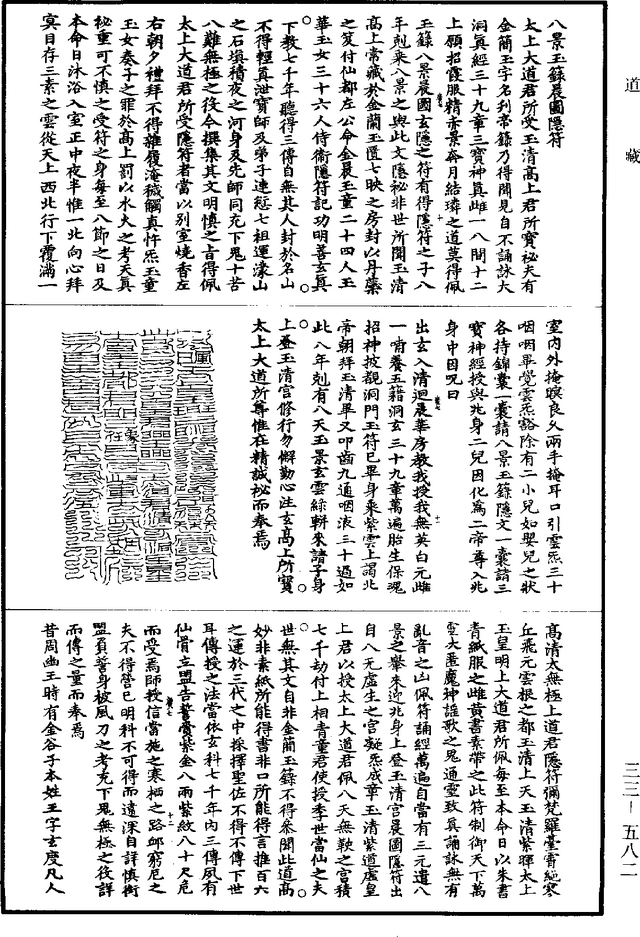 道藏
三三-五八二
八景玉籙晨圖隱符
太上大道君所受玉清高上君所寶秘夫有
金簡玉字名刋帝籙乃得聞見自不誦詠大
洞真經三十九章三寶神真雌一八間十二
上願招霞服精香景奔月結璘之道莫得佩
玉籙八景晨圖玄隱之符有得隱符之子八
年剋来八景之輿此文隱秘非世所聞玉清
高上常藏於金蘭玉匱七映之房封以丹藥
之笈付仙都左公命金晨玉童二十四人玉
華玉女三十六人侍衛隱符記功明善玄真
下教七千年聽得三傳自無其人封於名山
不得輕真泄寶師及弟子連愆七祖運濛山
之石填積夜之河身及先師同充下鬼十苦
八難無極之役令撰集其文明慎之旨得佩
太上大道君所受隱符者當以别室燒香左
右朝夕禮拜不得雜履淹穢觸真忤炁玉童
玉女奏子之罪於高上罰以水火之考天真
秘重可不慎之受符之身每至八節之日及
本命日沐浴入室正中夜半惟一北向心拜
冥目存三素之雲從天上西北行下覆滿一
室内外掩暝良久兩手掩耳口引靈炁三十
咽咽畢覺雲炁豁除有二小兒如嬰兒之狀
各持錦囊一囊請八景玉籙隱文一囊請三
寶神經授與兆身二兒因化為二帝尊入兆
身中因呪曰
出玄入清迴晨華房教我授我無英白元雌
一嘀養玉籍洞玄三十九章萬遍胎生保魂
招神披觀洞門玉符已畢身乘紫雲上謁北
帝朝拜玉清畢又叩齒九通咽液三十過如
此八年剋有八天玉景玄雲綠軿来諸子身
上登玉清宫修行勿懈勤心注玄高上所寶
太上大道所尊惟在精誠秘而奉焉
高清太無極上道君隱符彌梵羅臺霄絶寒
丘飛元雲根之都玉清上天玉清紫暉太上
玉皇明上大道君所佩每至本命日以朱書
青紙服之雌黄書素帶之此符制御天下萬
靈大匿魔神謡歌之鬼通靈致真誦詠無有
亂音之山佩符誦經萬遍自當有三元遺八
景之轝来迎兆身上登玉清宫晨圖隱符出
自八无虚生之宫凝炁成章玉清紫道虚皇
上君以授太上大道君佩八天無鞅之宫積
七千劫付上相青童君使授季世當仙之夫
世無其文自非金簡玉籙不得参聞此道高
妙非素紙所能得書非口所能得言推百六
之運於三代之中採擇聖佐不得不傳下世
耳傳授之法當依玄科七千年内三傳夙有
仙骨立盟告誓賫紫金八兩紫紋八十尺危
而受焉師授信當施之寒栖之路邱窮厄之
夫不得營已明科不可得而違深自詳慎銜
盟負誓身被風刀之考充下鬼無極之役詳
而傳之量而奉焉
昔周幽王時有金谷子本姓王字玄度凡人